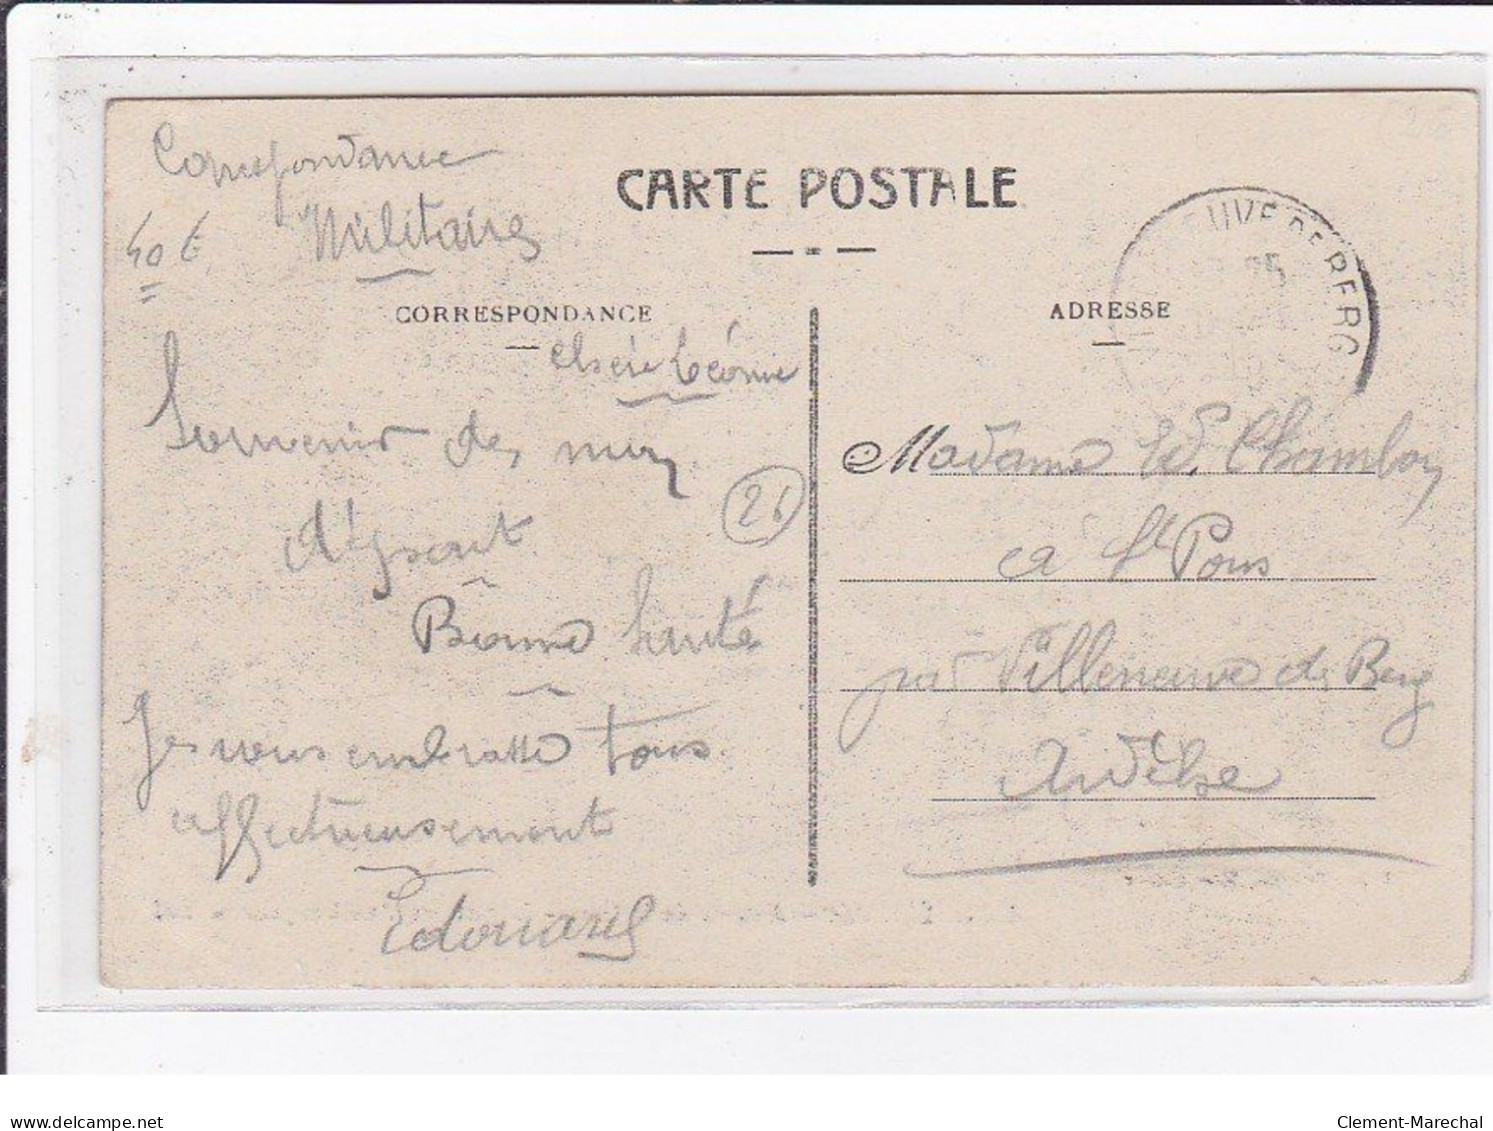 Correspondance
Militaire
40 €
CARTE POSTALE
CORRESPONDANCE
ADRESSE
EUVE DE BERG
Chère Léonie
Souvenir de mon
26
Bonne Santé
Je vous embrasse tous
affectueusement
Edouard
Madame Ed. Chambon
à St Pons
par Villeneuve de Berg
Ardèche
delcampe.net
Clement-Marechal